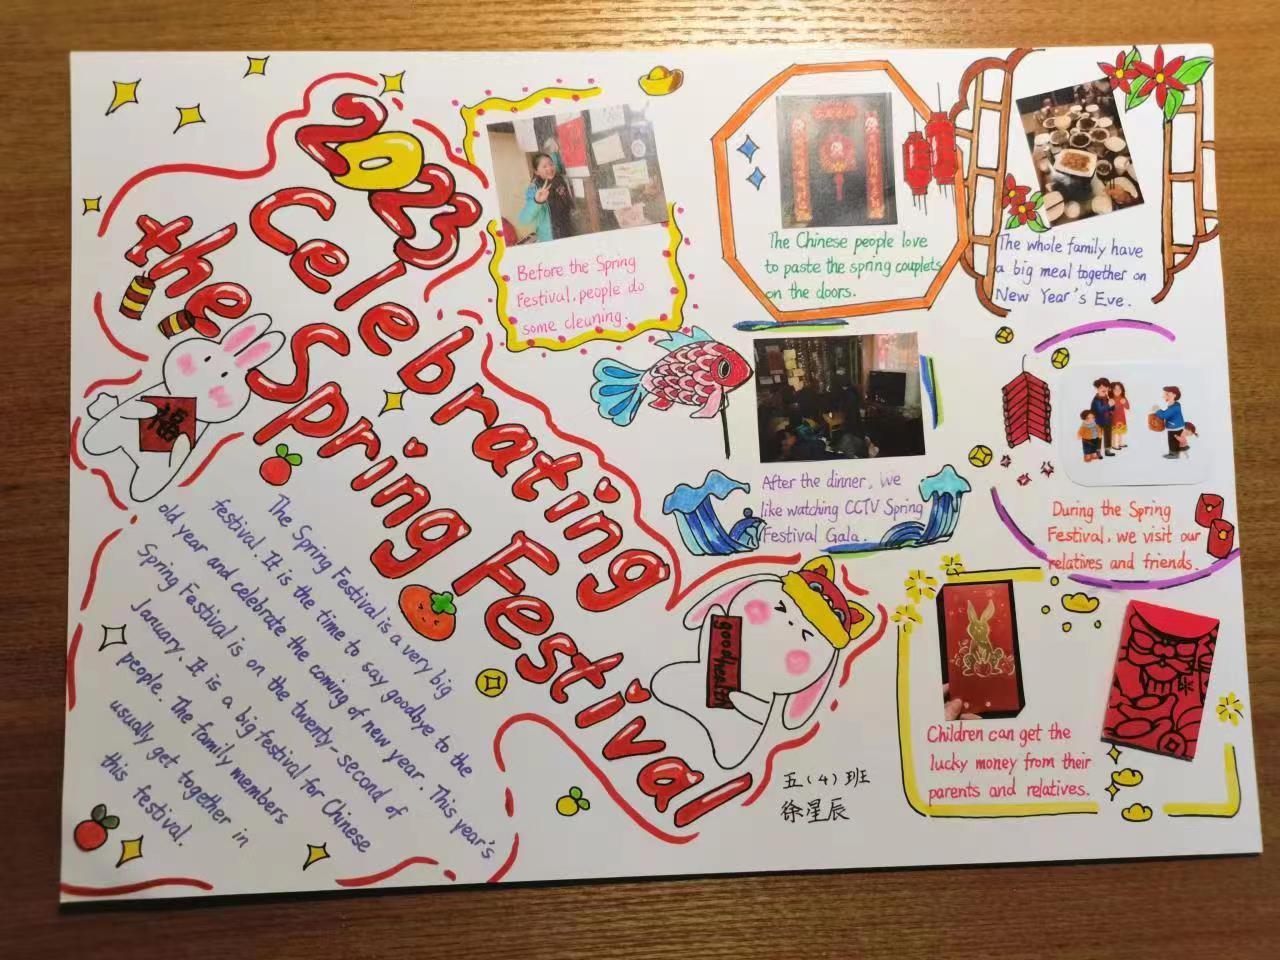 2023
Celebrating
the Spring Festival
福
The Spring Festival is a very big
festival. It is the time to say goodbye to the
old year and celebrate the coming of new year. This year's
Spring Festival is on the twenty-second of
January. It is a big festival for Chinese
people. The family members
usually get together in
this festival.
Before the Spring
Festival, people do
some cleaning.
The Chinese people love
to paste the spring couplets
on the doors.
The whole family have
a big meal together on
New Year's Eve.
After the dinner, we
like watching CCTV Spring
Festival Gala.
During the Spring
Festival, we visit our
relatives and friends.
good health
Children can get the
lucky money from their
parents and relatives.
五(4)班
徐星辰